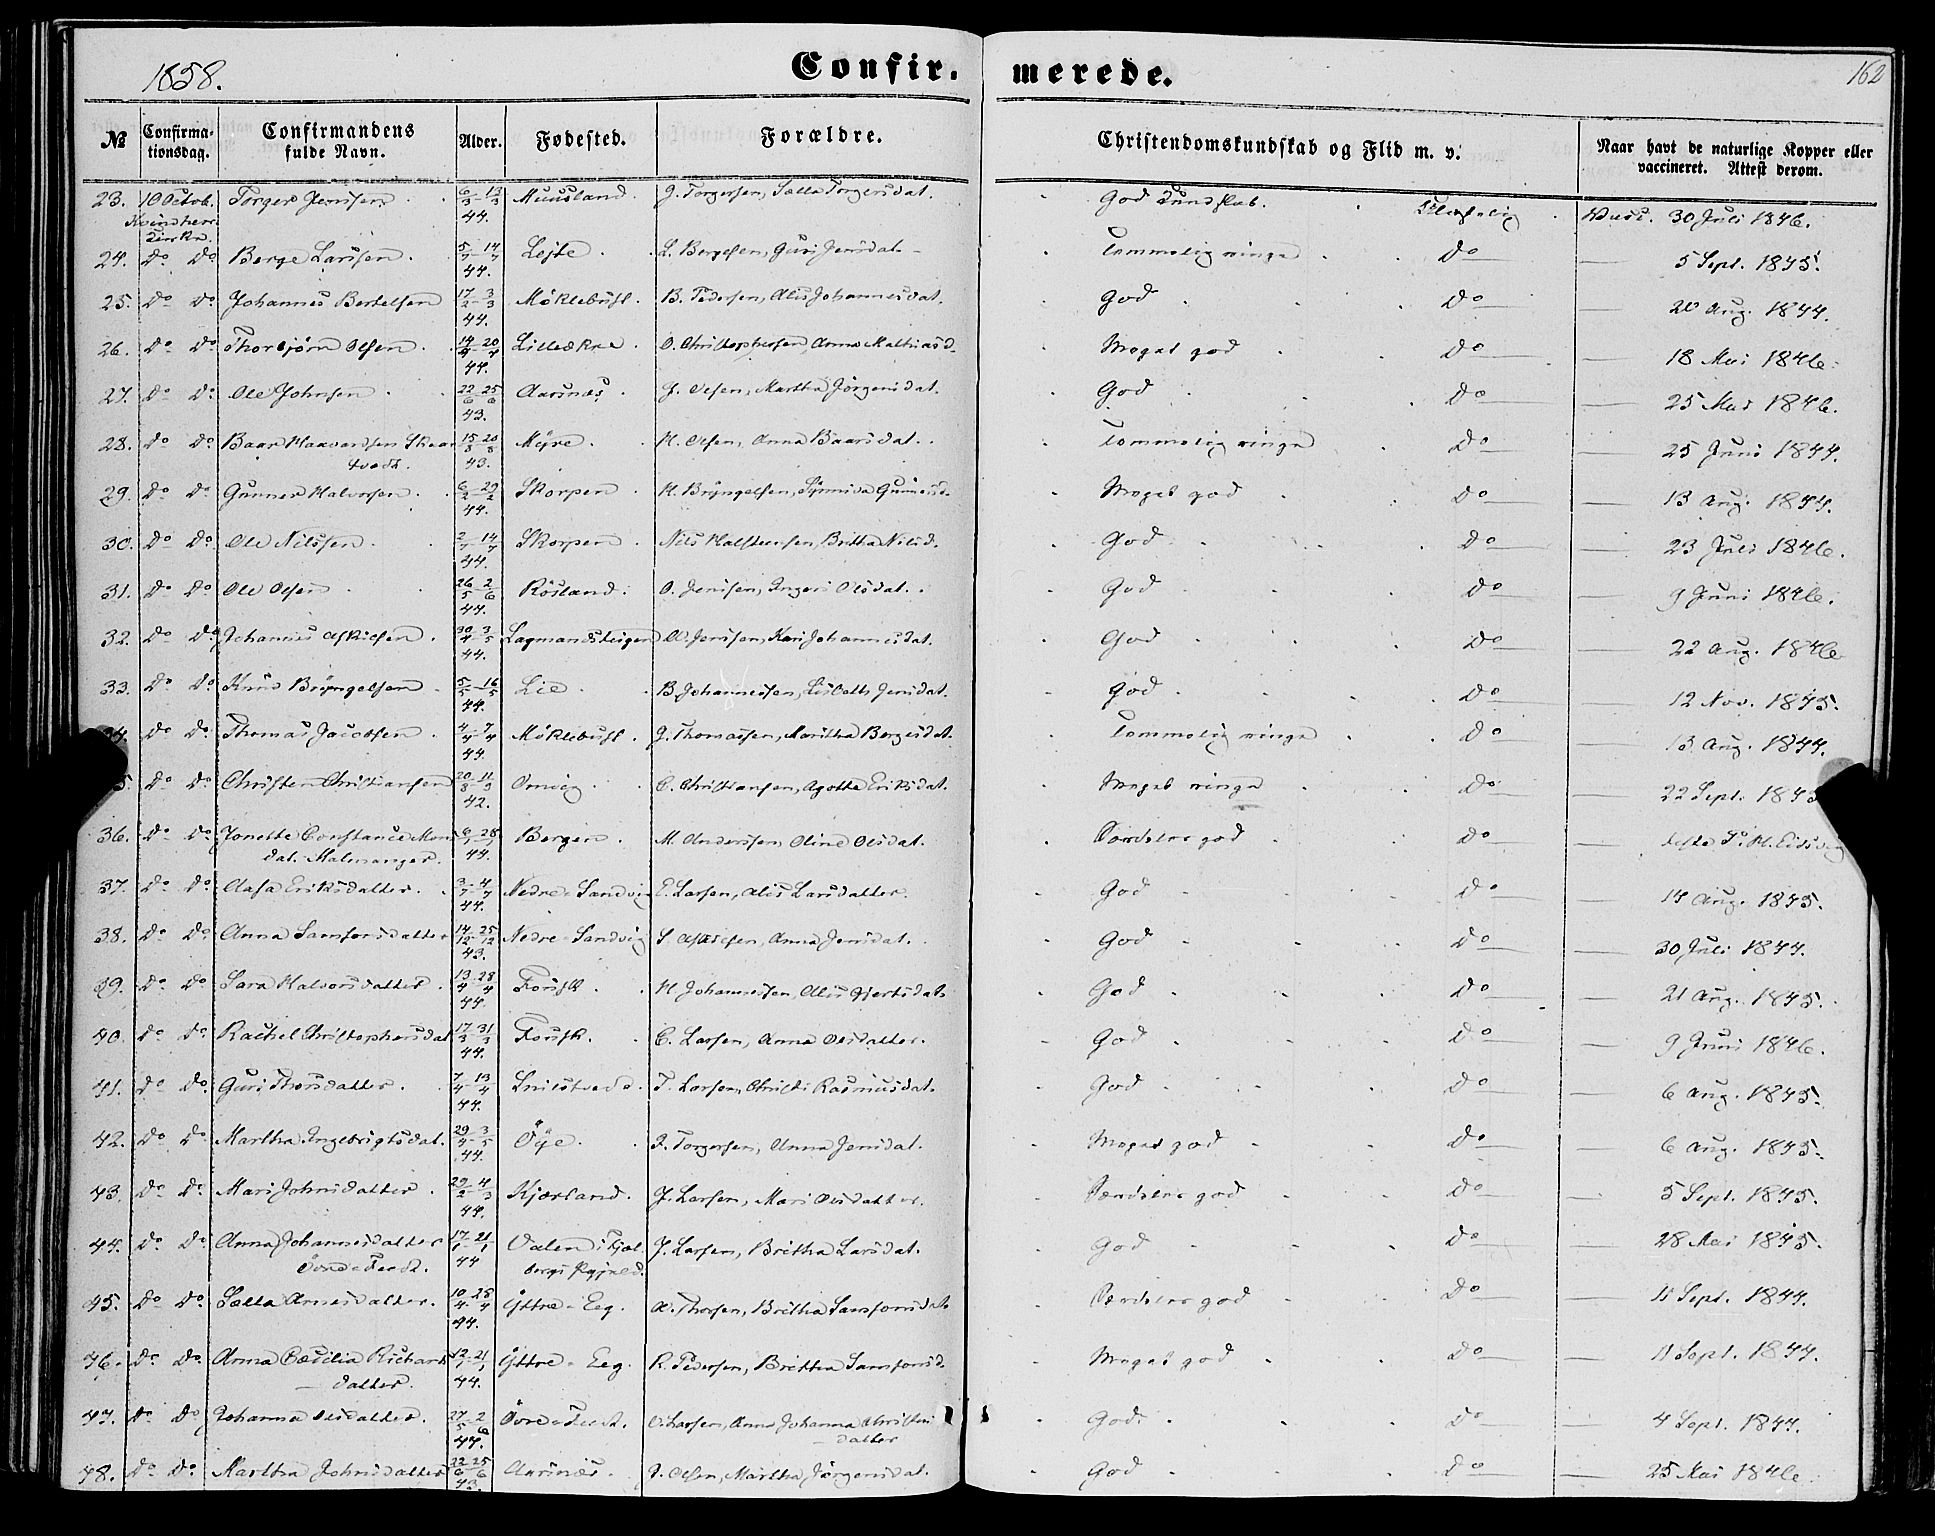 1858. Confir- merede. 162
№ Confirma- Confirmandens Alder. Fødested. Forældre. Christendomskundskab og Flid m. v. Naar havt de naturlige Kopper eller
tionsdag. fulde Navn. vaccineret. Attest derom.
23. 10 Octob. Torger Jenssen 6/3-13/3 Muusland. J. Torgersen, Sælla Torgersdat. God Kundskab. Vacc. 30 Juli 1846.
Kvindherr 44.
Kirke.
24. Do Do Berge Larssen. 5/7-14/7 Lejte. L. Bergesen, Guri Jensdat. Temmelig ringe Do 5 Sept. 1845.
44.
25. Do Do Johannes Bertelsen 17/2-3/3 Møklebust. B. Pedersen, Alis Johannesdat. God Do 20 Aug. 1844.
44.
26. Do Do Thorbjørn Olsen. 14/4-20/4 Lilleækre. O. Christophersen, Anna Mathiasd. Meget god Do 18 Mai 1846.
44.
27. Do Do Ole Johnsen 22/6-25/6 Aarsnes. J. Olsen, Martha Jørgensdat. God Do 25 Mai 1846.
43.
28. Do Do Baar Haavardsen Skaar 15/8-20/8 Myre. H. Olsen, Anna Baarsdat. Temmelig ringe Do 25 Juni 1844.
tvedt. 43.
29. Do Do Gunner Halvorsen. 6/2-29/2 Skorpen. H. Bryngelsen, Synniva Gunnersd. Meget god Do 13 Aug. 1844.
44.
30. Do Do Ole Nilssen. 2/7-14/7 Skorpen. Nils Halstensen, Britha Nilsd. God Do 23 Juli 1846.
44.
31. Do Do Ole Olsen 26/5-2/6 Røsland. O. Jenssen, Inger Olsdat. God Do 9 Juni 1846.
44.
32. Do Do Johannes Askielsen. 30/4-3/5 Lagmandsteigen A. Jenssen, Kari Johannesdat. God Do 22 Aug. 1846
44.
33. Do Do Knud Bryngelsen. 5/5-16/5 Lie. B. Johannessen, Lisbeth Jensdat. God Do 12 Nov. 1845.
44.
34. Do Do Thomas Jacobsen. 4/4-7/4 Møklebust. J. Thomassen, Maritha Bergesdat. Temmelig ringe Do 13 Aug. 1844.
44.
35. Do Do Christen Christiansen 20/8-11/9 Omvig. C. Christiansen, Agatha Eriksdat. Meget ringe Do 22 Sept. 1843
42.
36. Do Do Jonette Constance Mons Bergen. M. Anderssen, Oline Olsdat. Særdeles god Do
dat. Malmanger. 44.
37. Do Do Aasa Eriksdatter. 3/7-4/7 Nedre-Sandvig E. Larsen, Alis Larsdatter. God Do 14 Aug. 1845.
44.
38. Do Do Anna Samsonsdatter 14/12-25/12 Nedre-Sandvig S. Askielsen, Anna Jensdat. God Do 30 Juli 1844.
43.
39. Do Do Sara Halvorsdatter. 13/4-28/4 H. Johannessen, Alis Gjertsdat. God Do 21 Aug. 1845.
44.
40. Do Do Rachel Christophersdat 17/3-31/3 C. Larsen, Anna Olsdatter. God Do 9 Juni 1846.
44.
41. Do Do Guri Thorsdatter. 7/4-13/4 Snilstvedt. T. Larsen, Christi Rasmusdat. God Do 6 Aug. 1845.
44.
42. Do Do Martha Ingebrigtsdat. 29/4-3/5 Øye. I. Torgersen, Anna Jensdat. Meget god Do 6 Aug. 1845.
44.
43. Do Do Mari Johnsdatter. 29/2-4/3 Kjærland. J. Larsen, Mari Olsdatter. Særdeles god Do 5 Sept. 1845.
44.
44. Do Do Anna Johannesdatter 17/1-21/1 Valen i Fjel J. Larsen, Britha Larsdat. God Do 28 Mai 1845.
Øvre-Feedt. 44 bergs Pgjæld.
45. Do Do Sælla Arnesdatter. 10/4-28/4 Yttre-Eeg. A. Thorsen, Britha Samsonsdat. Særdeles god Do 11 Sept. 1844.
44.
46. Do Do Anna Cæcilia Richards 12/1-21/1 Yttre-Eeg. R. Pedersen, Britha Samsonsd. Meget god Do 11 Sept. 1844.
datter. 44.
47. Do Do Johanna Olsdatter. 27/5-2/6 Øvre-Feedt. O. Larsen, Anna Johanna Christens God Do 4 Sept. 1844.
44. datter
48. Do Do Martha Johnsdatter 22/6-25/6 Aarsnæs. J. Olsen, Martha Jørgensdat. God Do 25 Mai 1846.
43.